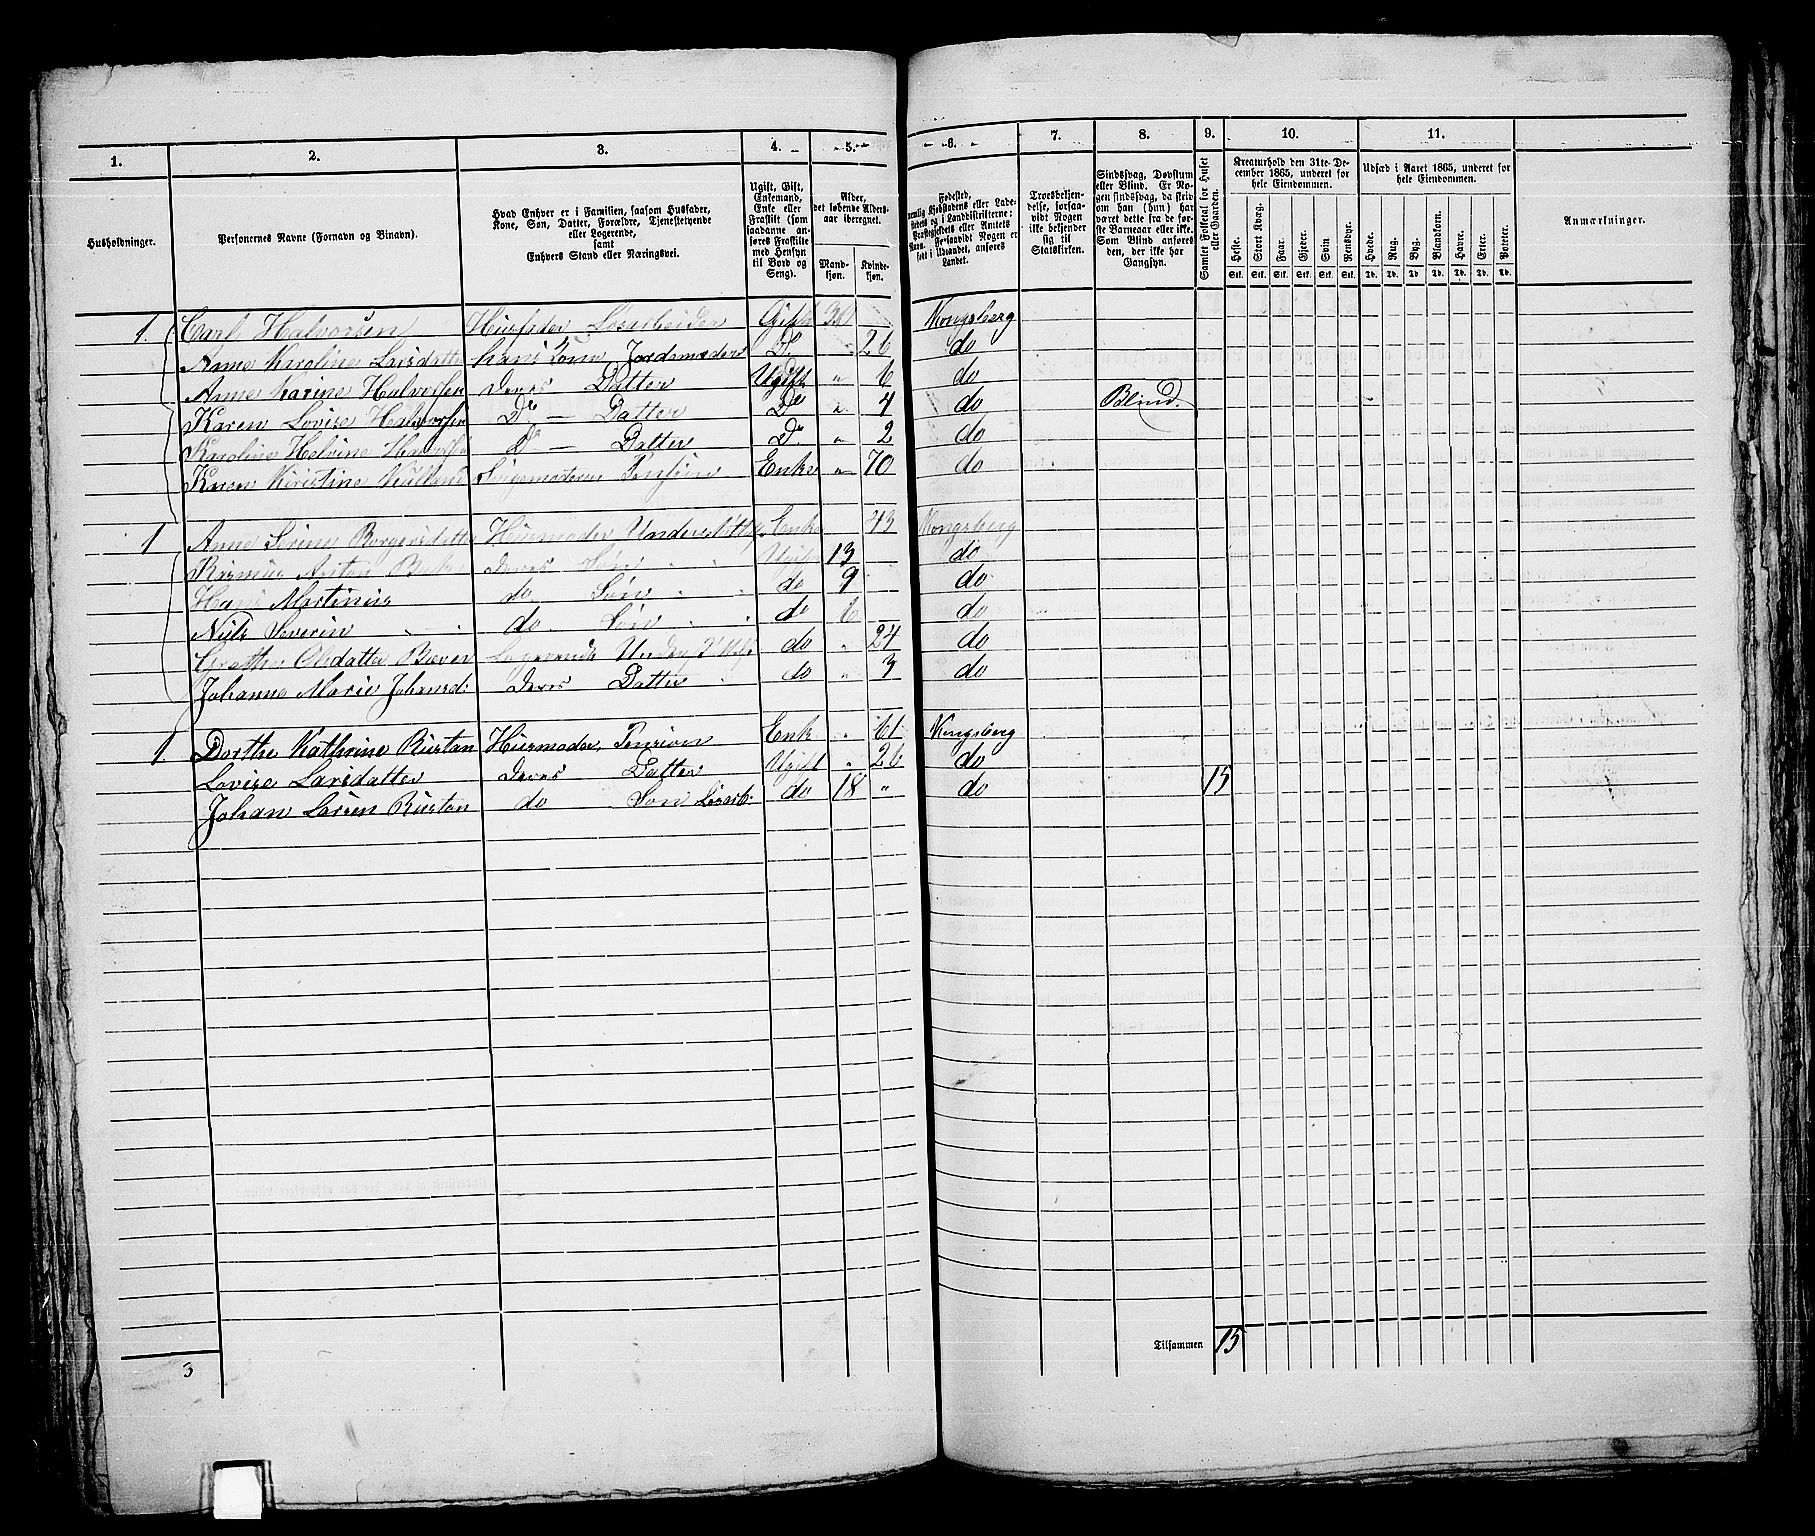 1. 2. 3. 4. 5. 6. 7. 8. 9. 10. 11.
Husholdninger.
Personernes Navne (Fornavn og Binavn).
Hvad Enhver er i Familien, saasom Husfader,
Kone, Søn, Datter, Forældre, Tjenestetyende
eller Logerende,
samt
Enhvers Stand eller Næringsvei.
Ugift, Gift,
Enkemand,
Enke eller
Fraskilt (som
saadanne an-
føres Fraskilte
med Hensyn
til Bord og
Seng).
Alder,
det løbende Alders-
aar iberegnet.
Mand-
kjøn.
Kvinde-
kjøn.
Fødested,
Troesbekjen-
delse, forsaa-
vidt Nogen
ikke bekjender
sig til
Statskirken.
Sindssvag, Døvstum
eller Blind. Er No-
gen sindssvag, da skriv
om han (hun) har
været dette fra de før-
ste Barneaar eller ikke.
Som Blind anføres
den, der ikke har
Gangsyn.
Samlet Folketal for Huset
eller Gaarden.
Kreaturhold den 31te De-
cember 1865, underet for
hele Eiendommen.
Heste. Stort Kvæg. Faar. Gjeder. Svin. Rensdyr.
Udsæd i Aaret 1865, underet for
hele Eiendommen.
Hvede. Rug. Byg. Blandkorn. Havre. Erter. Poteter.
Anmærkninger.
1. Carl Halvorsen Husfader Løsarbeider Gift 30 Kongsberg
Anne Karoline Larsdatter hans Kone Jordemoder Do 26 do
Anne Karine Halvorsen Deres Datter Ugift " 6 do
Karen Lovise Halvorsen Do — Datter Do " 4 do Blind.
Karoline Helvine Halvorsen Do — Datter Do " 2 do
Karen Kirstine Enke " 70 do
1 Anne Serine Borgersdatter Husmoder Enke 43 Kongsberg
Rasmus Anton Deres Søn Ugift 13 do
Hans Martinus do Søn do 9 do
Niels Severin do Søn do 6 do
Grethe Olsdatter Bæver Logerende do " 24 do
Johanne Marie Johansd: Deres Datter do " 3 do
1. Dorthe Kathrine Rustan Husmoder, Pension Enk " 61 Kongsberg
Lovise Larsdatter Deres Datter Ugift " 26 do
Johan Larsen Rustan do Søn Løsarb: do 18 " do 15
3 Tilsammen 15